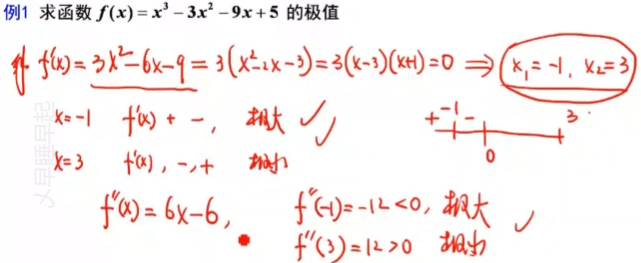 例1 求函数 f(x)=x³-3x²-9x+5 的极值
解. f'(x)=3x²-6x-9=3(x²-2x-3)=3(x-3)(x+1)=0 ⇒ x₁=-1, x₂=3
x=-1 f'(x) + -, 极大 ✓✓
+ -1 - 3
0
x=3 f'(x), -, + 极小
f''(x)=6x-6, f''(-1)=-12<0, 极大 ✓
f''(3)=12>0 极小
早睡早起